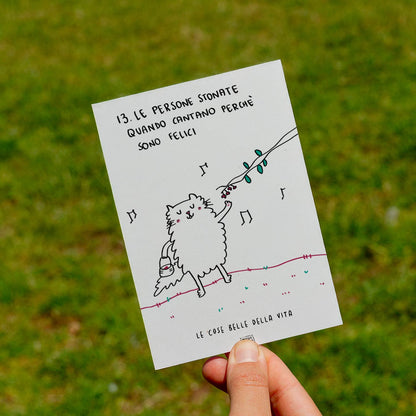 13. LE PERSONE STONATE
QUANDO CANTANO PERCHÈ
SONO FELICI
LE COSE BELLE DELLA VITA